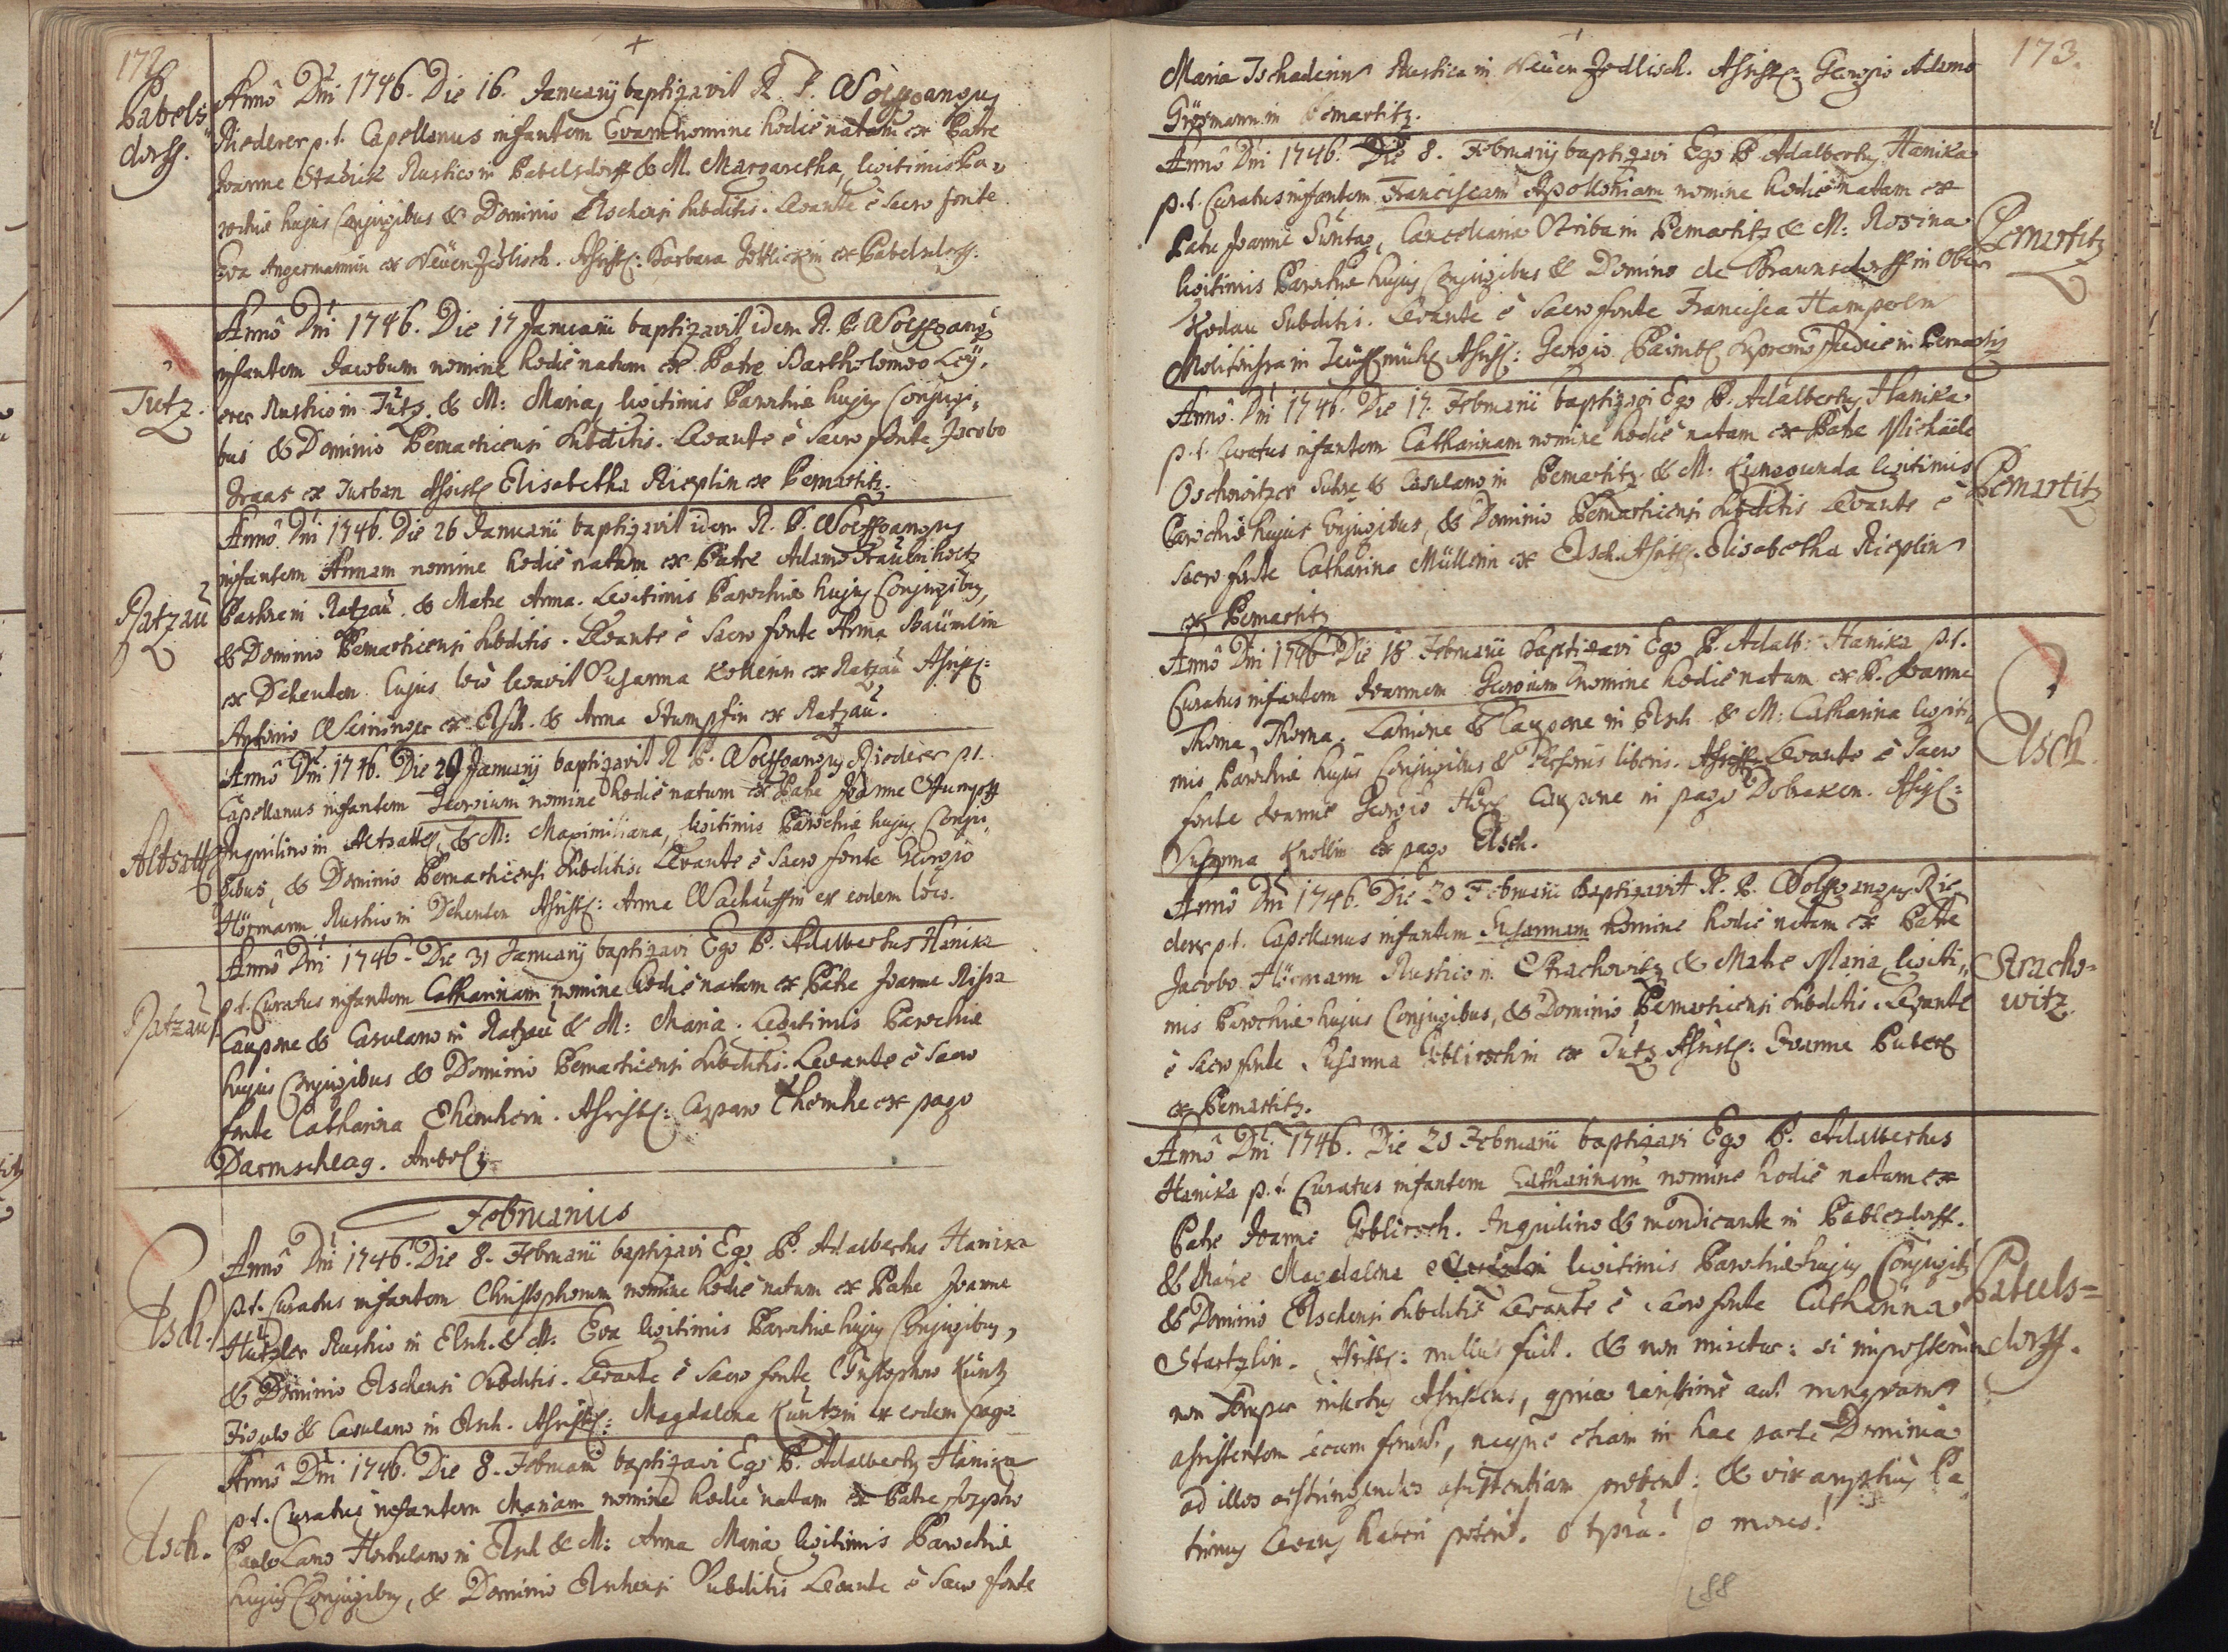 172
Pabels=
dorff.
Annô Dni 1746. Die 16. Januarij baptizavit R. P. Wolffgangus
Riederer p. t. Capellanus infantem Evam nomine hodie natam ex Patre
Joanne Stadick Rustico in Pabelsdorff & M. Margaretha, legitimis Pa=
rochiæ hujus Conjugibus & Dominio Elschensi subditis. Levante è Sacro fonte
Eva Angermannin ex Neüen Zedlisch. Assist: Barbara ex Pabelsdorff.
Tutz.
Annô Dni 1746. Die 17 Januarii baptizavit idem R. P. Wolffgang9
infantem Jacobum nomine hodie natum ex Patre Bartholomeo Ley=
erer Rustico in Tutz. & M: Maria, legitimis Parochiæ hujus Conjugi=
bus & Dominio Pernarticensi subditis. Levante è Sacro fonte Jacobo
ex Turban Assist: Elisabetha Rieplin ex Pernartitz.
Ratzau
Annô Dni 1746. Die 26 Januarii baptizavit idem R. P. Wolffgangus
infantem Annam nomine hodie natam ex Patre Adamo
in Ratzau. & Matre Anna. Legitimis Parochiæ hujus Conjugibus,
& Dominio Pernarticensi subditis. Levante è Sacro fonte Anna Bäumlin
ex Dehenten. Cujus loco levavit Susanna ex Ratzau Assist:
Antonio ex Elsch. & Anna Stumpfin ex Ratzau.
Altsattl
Annô Dni 1746. Die 29 Januarij baptizavit R. P. Wolffgangus Riederer p. t.
Capellanus infantem Georgium nomine hodie natum ex Patre Joanne Stumpff
Inquilino in Altsattl, & M: Maximiliana, legitimis Parochiæ hujus Conju=
gibus, & Dominio Pernarticensi subditis. Levante è Sacro fonte Georgio
Hörmann Rustico in Dehenten Assist: Anna ex eodem loco.
Ratzau
Annô Dni 1746. Die 31 Januarij baptizavi Ego P. Adalbertus Hanika
p. t. Curatus infantem Catharinam nomine hodie natam ex Patre Joanne
Caupone & Casulano in Ratzau & M: Maria. Legitimis Parochiæ
hujus Conjugibus & Dominio Pernarticensi subditis. Levante è Sacro
fonte Catharina Assist: Casparo ex pago
Darmschlag.
Februarius
Elsch.
Annô Dni 1746. Die 8. Februarii baptizavi Ego P. Adalbertus Hanika
p. t. Curatus infantem Christophorum nomine hodie natum ex Patre Joanne
Hützler Rustico in Elsch. & M. Eva legitimis Parochiæ hujus Conjugibus,
& Dominio Elschensi subditis. Levante è Sacro fonte Christophoro Küntz
Figulo & Casulano in Elsch. Assist: Magdalena Küntzin ex eodem pago
Elsch.
Annô Dni 1746. Die 8. Februarii baptizavi Ego P. Adalbertus Hanika
p. t. Curatus infantem Mariam nomine hodie natam ex Patre Josepho
Hortulano in Elsch & M: Anna Maria legitimis Parochiæ
hujus Conjugibus, & Dominio Elschensi Subditis Levante è Sacro fonte
173.
Maria Rustica in Neüen Zedlisch. Assist: Georgio Adamo
in Pernartitz.
Pernartitz
Annô Dni 1746. Die 8. Februarij baptizavi Ego P. Adalbertus Hanika
p. t. Curatus infantem Franciscam Apolloniam nomine hodie natam ex
Patre Joanne Suntag, Cancellariæ Scriba in Pernartitz & M: Rosina
legitimis Parochiæ hujus Conjugibus & Domino de Braunsdorff in Ober
Kodau Subditis. Levante è Sacro fonte Francisca
in Assist: Georgio Supremo Judice in Pernartitz
Pernartitz
Annô Dni 1746. Die 17. Februarii baptizavi Ego P. Adalbertus Hanika
p. t. Curatus infantem Catharinam nomine hodie natam ex Patre Michaële
Oschowitzer & Casulano in Pernartitz & M. Kunegunda legitimis
Parochiæ hujus Conjugibus, & Dominio Pernarticensi subditis Levante è
Sacro fonte Catharina Müllerin ex Elsch. Assist. Elisabetha Rieplin
ex Pernartitz
Elsch.
Annô Dni 1746 Die 18 Februarii baptizavi Ego P. Adalb: Hanika p. t.
Curatus infantem Joannem Georgium nomine hodie natum ex P. Joanne
Thoma, Thoma. Lanione & Caupone in Elsch & M: Catharina legiti=
mis Parochiæ hujus Conjugibus & Personis liberis. Levante è Sacro
fonte Joanne Georgio Caupone in pago Dobraken. Assist:
Susanna Knollin ex pago Elsch.
Stracho=
witz.
Annô Dni 1746. Die 20 Februarii baptizavit R. P. Wolffgangus Rie=
derer p. t. Capellanus infantem Susannam nomine hodie natam ex Patre
Jacobo Hörmann Rustico in Strachowitz & Matre Maria, legiti=
mis Parochiæ hujus Conjugibus, & Dominio Pernarticensi subditis. Levante
è Sacro fonte Susanna Goblirschin ex Tutz Assist: Joanne
ex Pernartitz.
Pabels=
dorff.
Annô Dni 1746. Die 20 Februarii baptizavi Ego P. Adalbertus
Hanika p. t. Curatus infantem Catharinam nomine hodie natam ex
Patre Joanne Goblirsch. Inquilino & mendicante in Pablesdorff.
& Matre Magdalena legitimis Parochiæ hujus Conjugib9
& Dominio Elschensi subditis Levante è Sacro fonte Catharina
Startzlin. Assist: nullus fuit. & non miretur: si imposterum
non semper Assistens, quia rarissimè aut nunquam
assistentem secum ferunt, neque etiam in hac parte Dominia
ad illos assistentiam præbent: & vix Pa=
trinus Levans haberi poterit. o tpra! o mores!
88